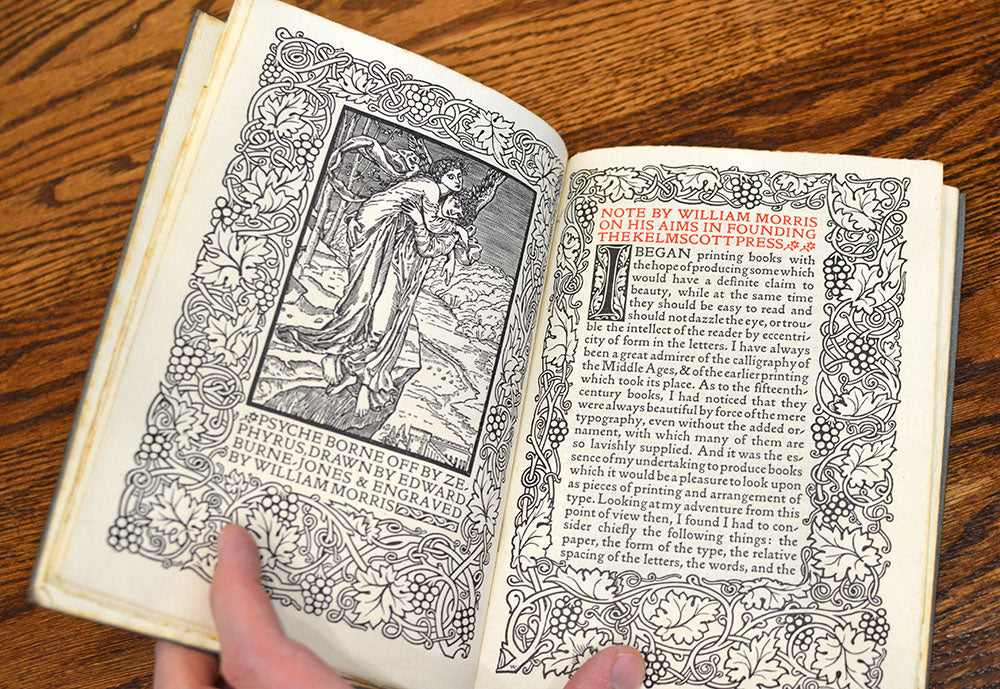 PSYCHE BORNE OFF BY ZE,
PHYRUS, DRAWN BY EDWARD
BURNE-JONES & ENGRAVED
BY WILLIAM MORRIS
NOTE BY WILLIAM MORRIS
ON HIS AIMS IN FOUNDING
THE KELMSCOTT PRESS
I BEGAN printing books with
the hope of producing some which
would have a definite claim to
beauty, while at the same time
they should be easy to read and
should not dazzle the eye, or trou-
ble the intellect of the reader by eccentri-
city of form in the letters. I have always
been a great admirer of the calligraphy of
the Middle Ages, & of the earlier printing
which took its place. As to the fifteenth-
century books, I had noticed that they
were always beautiful by force of the mere
typography, even without the added or-
nament, with which many of them are
so lavishly supplied. And it was the es-
sence of my undertaking to produce books
which it would be a pleasure to look upon
as pieces of printing and arrangement of
type. Looking at my adventure from this
point of view then, I found I had to con-
sider chiefly the following things: the
paper, the form of the type, the relative
spacing of the letters, the words, and the